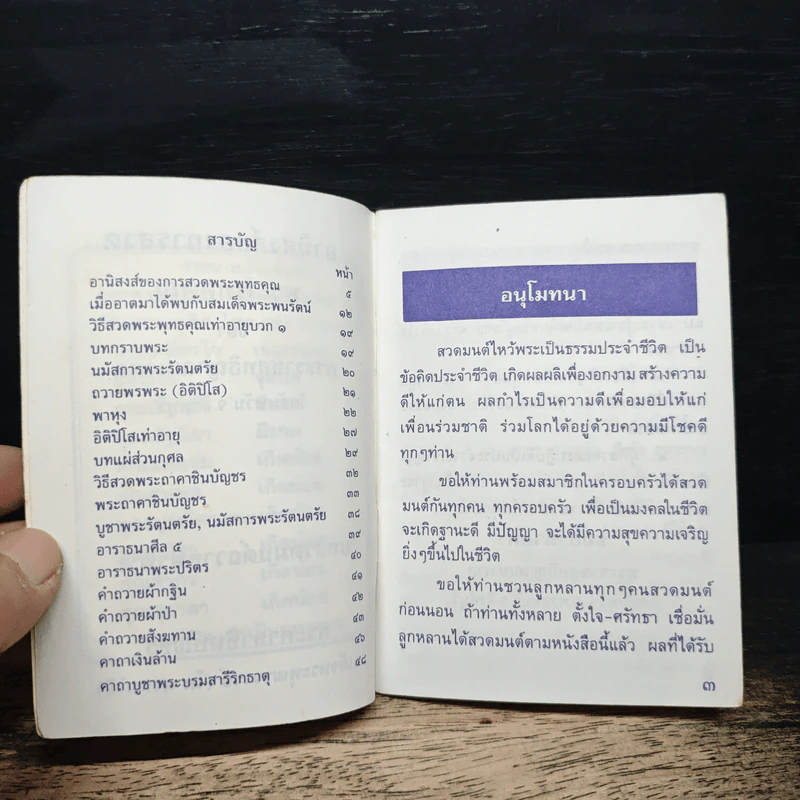 สารบัญ
หน้า
อานิสงส์ของการสวดพระพุทธคุณ ๕
เมื่ออาตมาได้พบกับสมเด็จพระพนรัตน์ ๑๒
วิธีสวดพระพุทธคุณเท่าอายุบวก ๑ ๑๙
บทกราบพระ ๑๙
นมัสการพระรัตนตรัย ๒๐
ถวายพรพระ (อิติปิโส) ๒๑
พาหุง ๒๒
อิติปิโสเท่าอายุ ๒๗
บทแผ่ส่วนกุศล ๒๙
วิธีสวดพระถาคาชินบัญชร ๓๒
พระถาคาชินบัญชร ๓๓
บูชาพระรัตนตรัย, นมัสการพระรัตนตรัย ๓๘
อาราธนาศีล ๕ ๓๙
อาราธนาพระปริตร ๔๐
คำถวายผ้ากฐิน ๔๑
คำถวายผ้าป่า ๔๒
คำถวายสังฆทาน ๔๓
คาถาเงินล้าน ๔๖
คาถาบูชาพระบรมสารีริกธาตุ ๔๘
อนุโมทนา
สวดมนต์ไหว้พระเป็นธรรมประจำชีวิต เป็น
ข้อคิดประจำชีวิต เกิดผลผลิเพื่องอกงาม สร้างความ
ดีให้แก่ตน ผลกำไรเป็นความดีเพื่อมอบให้แก่
เพื่อนร่วมชาติ ร่วมโลกได้อยู่ด้วยความมีโชคดี
ทุกๆท่าน
ขอให้ท่านพร้อมสมาชิกในครอบครัวได้สวด
มนต์กันทุกคน ทุกครอบครัว เพื่อเป็นมงคลในชีวิต
จะเกิดฐานะดี มีปัญญา จะได้มีความสุขความเจริญ
ยิ่งๆขึ้นไปในชีวิต
ขอให้ท่านชวนลูกหลานทุกๆคนสวดมนต์
ก่อนนอน ถ้าท่านทั้งหลาย ตั้งใจ-ศรัทธา เชื่อมั่น
ลูกหลานได้สวดมนต์ตามหนังสือนี้แล้ว ผลที่ได้รับ
๓